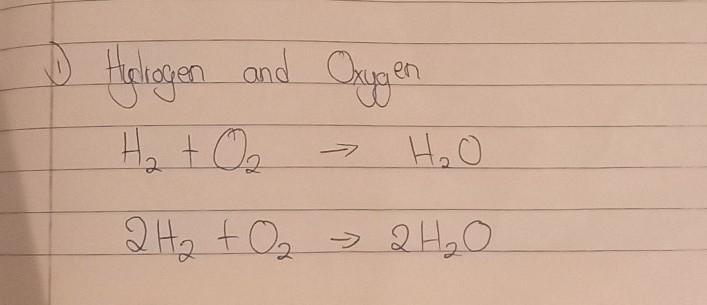 1) Hydrogen and Oxygen
H₂ + O₂ → H₂O
2H₂ + O₂ → 2H₂O